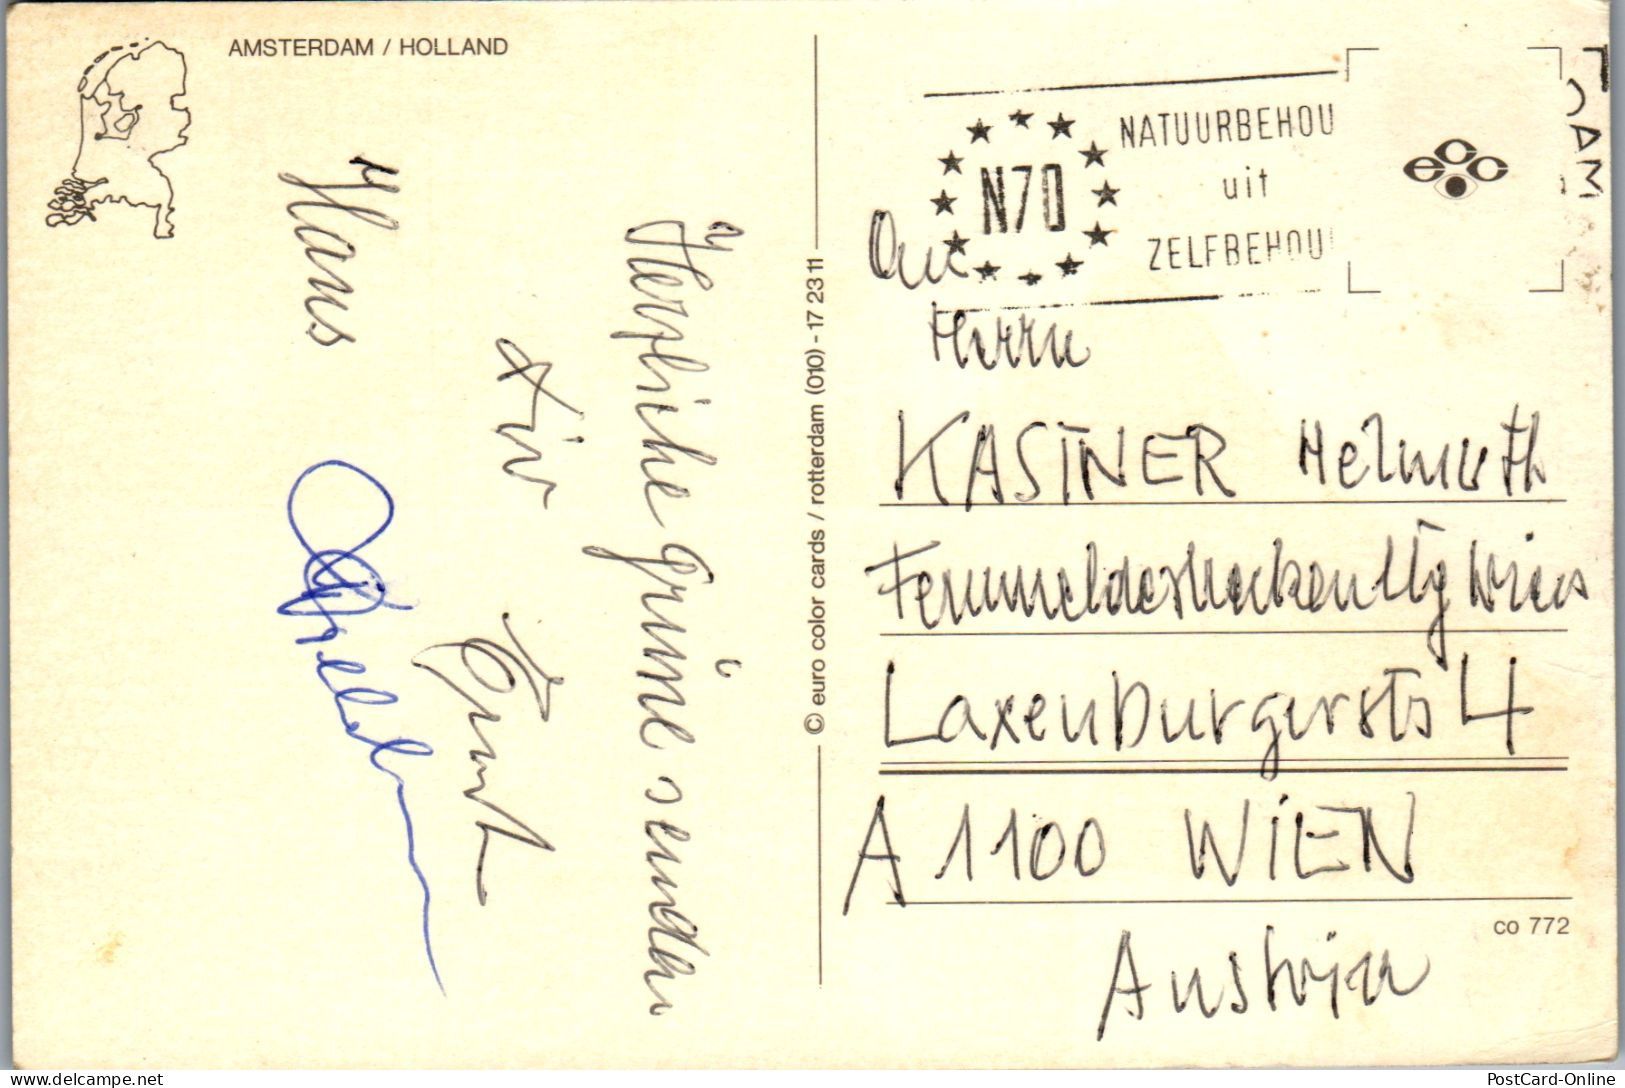 AMSTERDAM / HOLLAND
Herzliche Grüße senden
dir
Ernst
Hans
© euro color cards / rotterdam (010) - 17 23 11
N70
NATUURBEHOU
uit
ZELFBEHOU
ecc
DAM
An
Herrn
KASTNER Helmuth
Wien
Laxenburgerstr 4
A 1100 WIEN
Austria
co 772
PostCard-Online